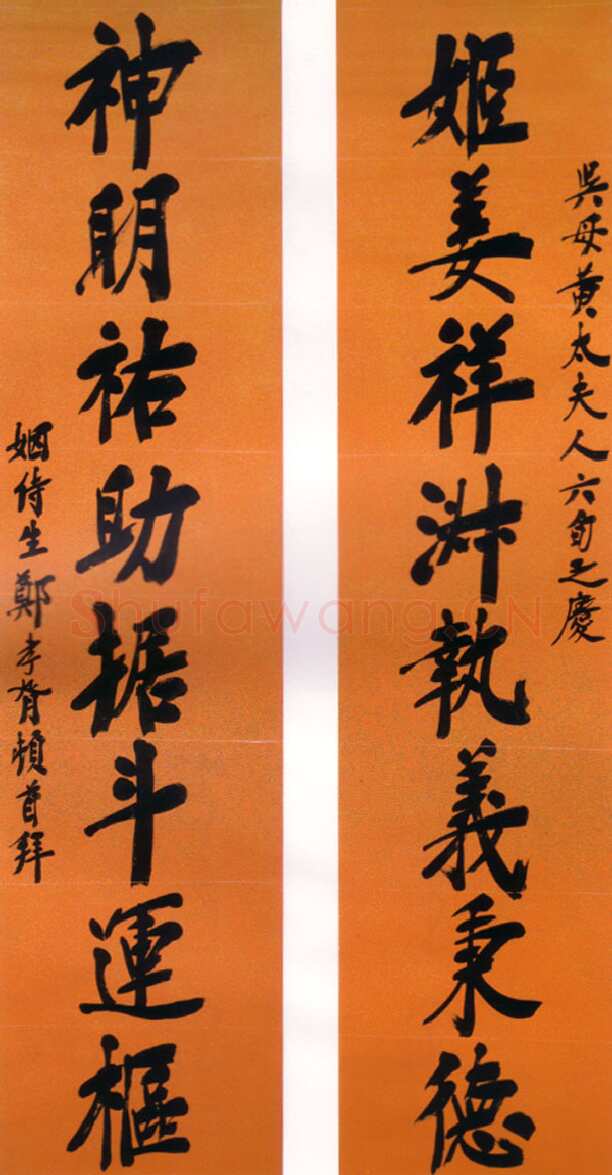 吳母黃太夫人六旬之慶
姬姜祥淑執義秉德
神明祐助据斗運樞
姻侍生鄭孝胥頓首拜
Shufawang.CN